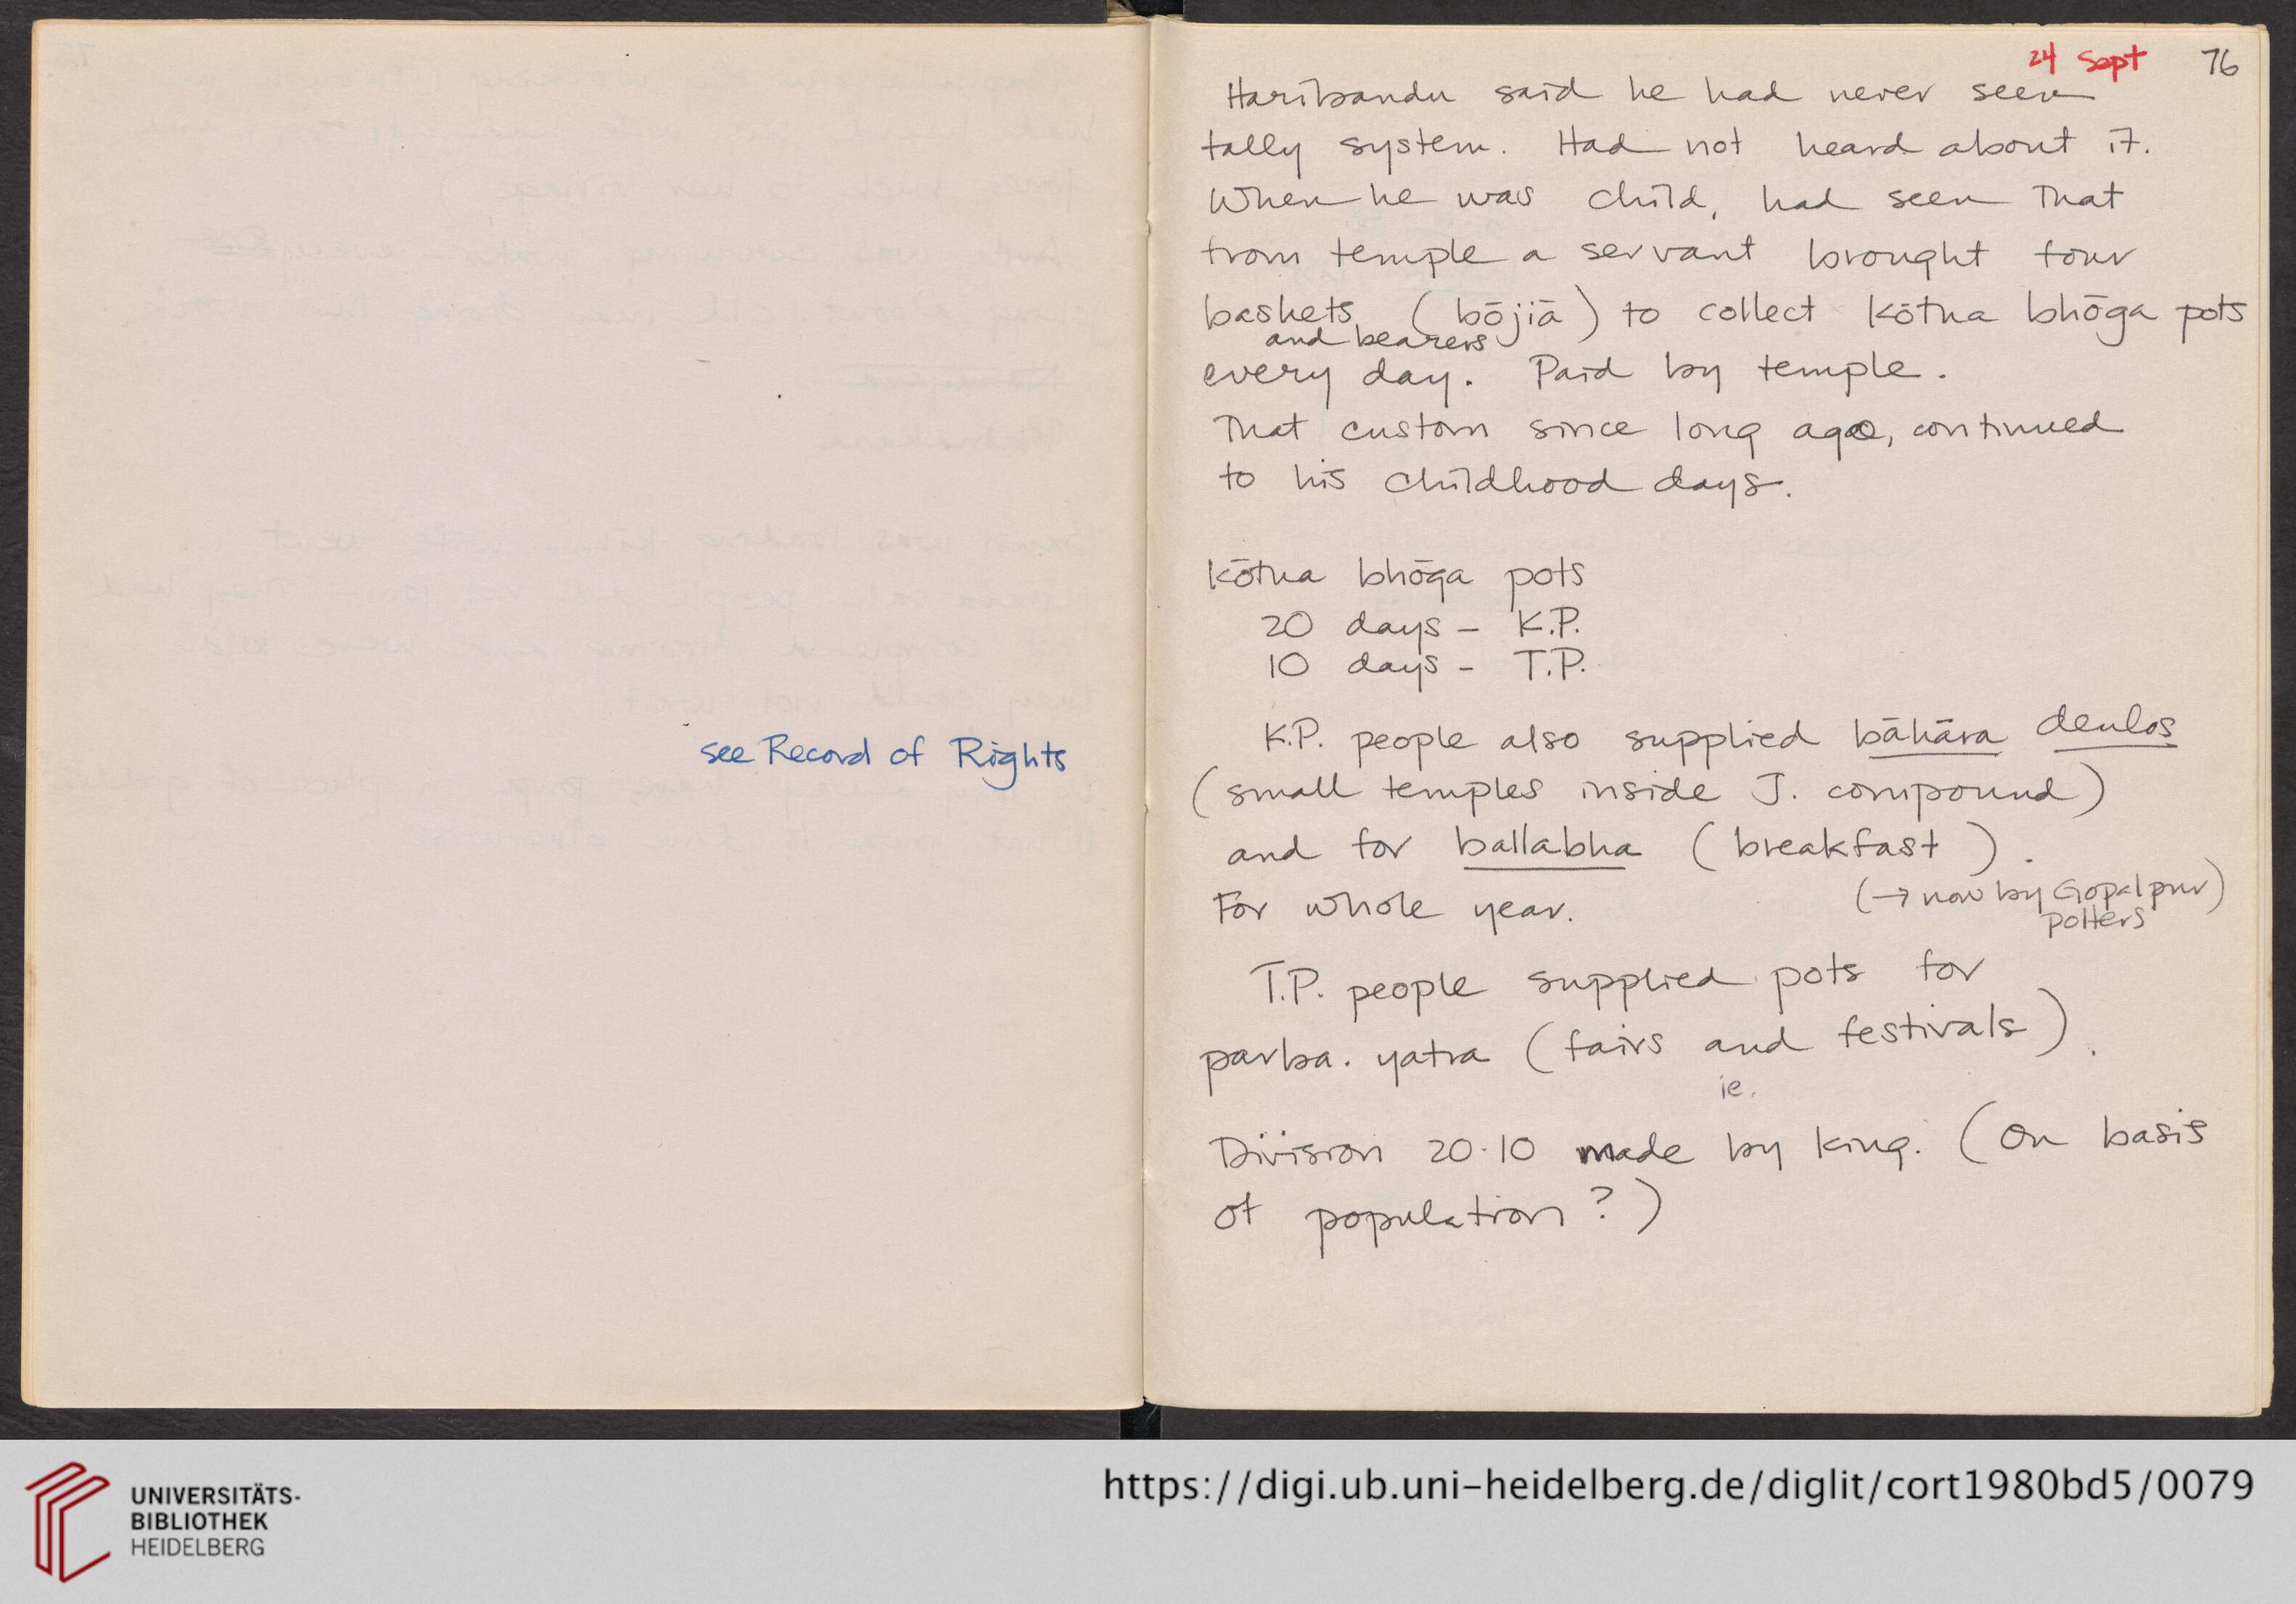 see Record of Rights
24 Sept 76
Haribandu said he had never seen
tally system. Had not heard about it.
When he was child, had seen that
from temple a servant brought four
baskets (bōjiā) to collect kōtha bhōga pots
and bearers
every day. Paid by temple.
That custom since long ago, continued
to his childhood days.
Kōtha bhōga pots
20 days - K.P.
10 days - T.P.
K.P. people also supplied bāhāra deulos
(small temples inside J. compound)
and for ballabha (breakfast).
For whole year. (→ now by Gopalpur
potters)
T.P. people supplied pots for
parba. yatra (fairs and festivals).
ie.
Division 20·10 made by king. (On basis
of population?)
UNIVERSITÄTS-
BIBLIOTHEK
HEIDELBERG
https://digi.ub.uni-heidelberg.de/diglit/cort1980bd5/0079